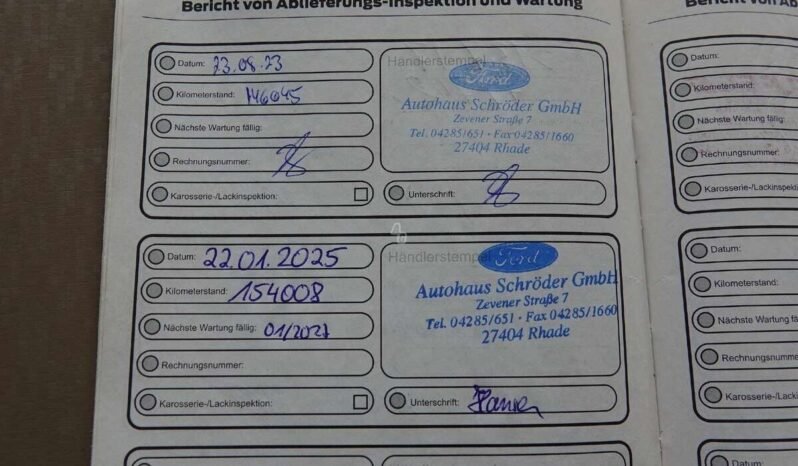 Bericht von Ablieferungs-Inspektion und Wartung
Datum: 23.08.23
Händlerstempel
Ford
Kilometerstand: 146645
Autohaus Schröder GmbH
Zevener Straße 7
Nächste Wartung fällig:
Tel. 04285/651 · Fax 04285/1660
27404 Rhade
Rechnungsnummer:
Karosserie-/Lackinspektion:
Unterschrift:
Datum: 22.01.2025
Händlerstempel
Ford
Kilometerstand: 154008
Autohaus Schröder GmbH
Zevener Straße 7
Nächste Wartung fällig: 01/2027
Tel. 04285/651 · Fax 04285/1660
27404 Rhade
Rechnungsnummer:
Karosserie-/Lackinspektion:
Unterschrift:
Bericht von Ab
Datum:
Kilometerstand:
Nächste Wartung fällig:
Rechnungsnummer:
Karosserie-/Lackinspekt
Datum:
Kilometerstand:
Nächste Wartung fä
Rechnungsnumme
Karosserie-/Lackin
Datum: